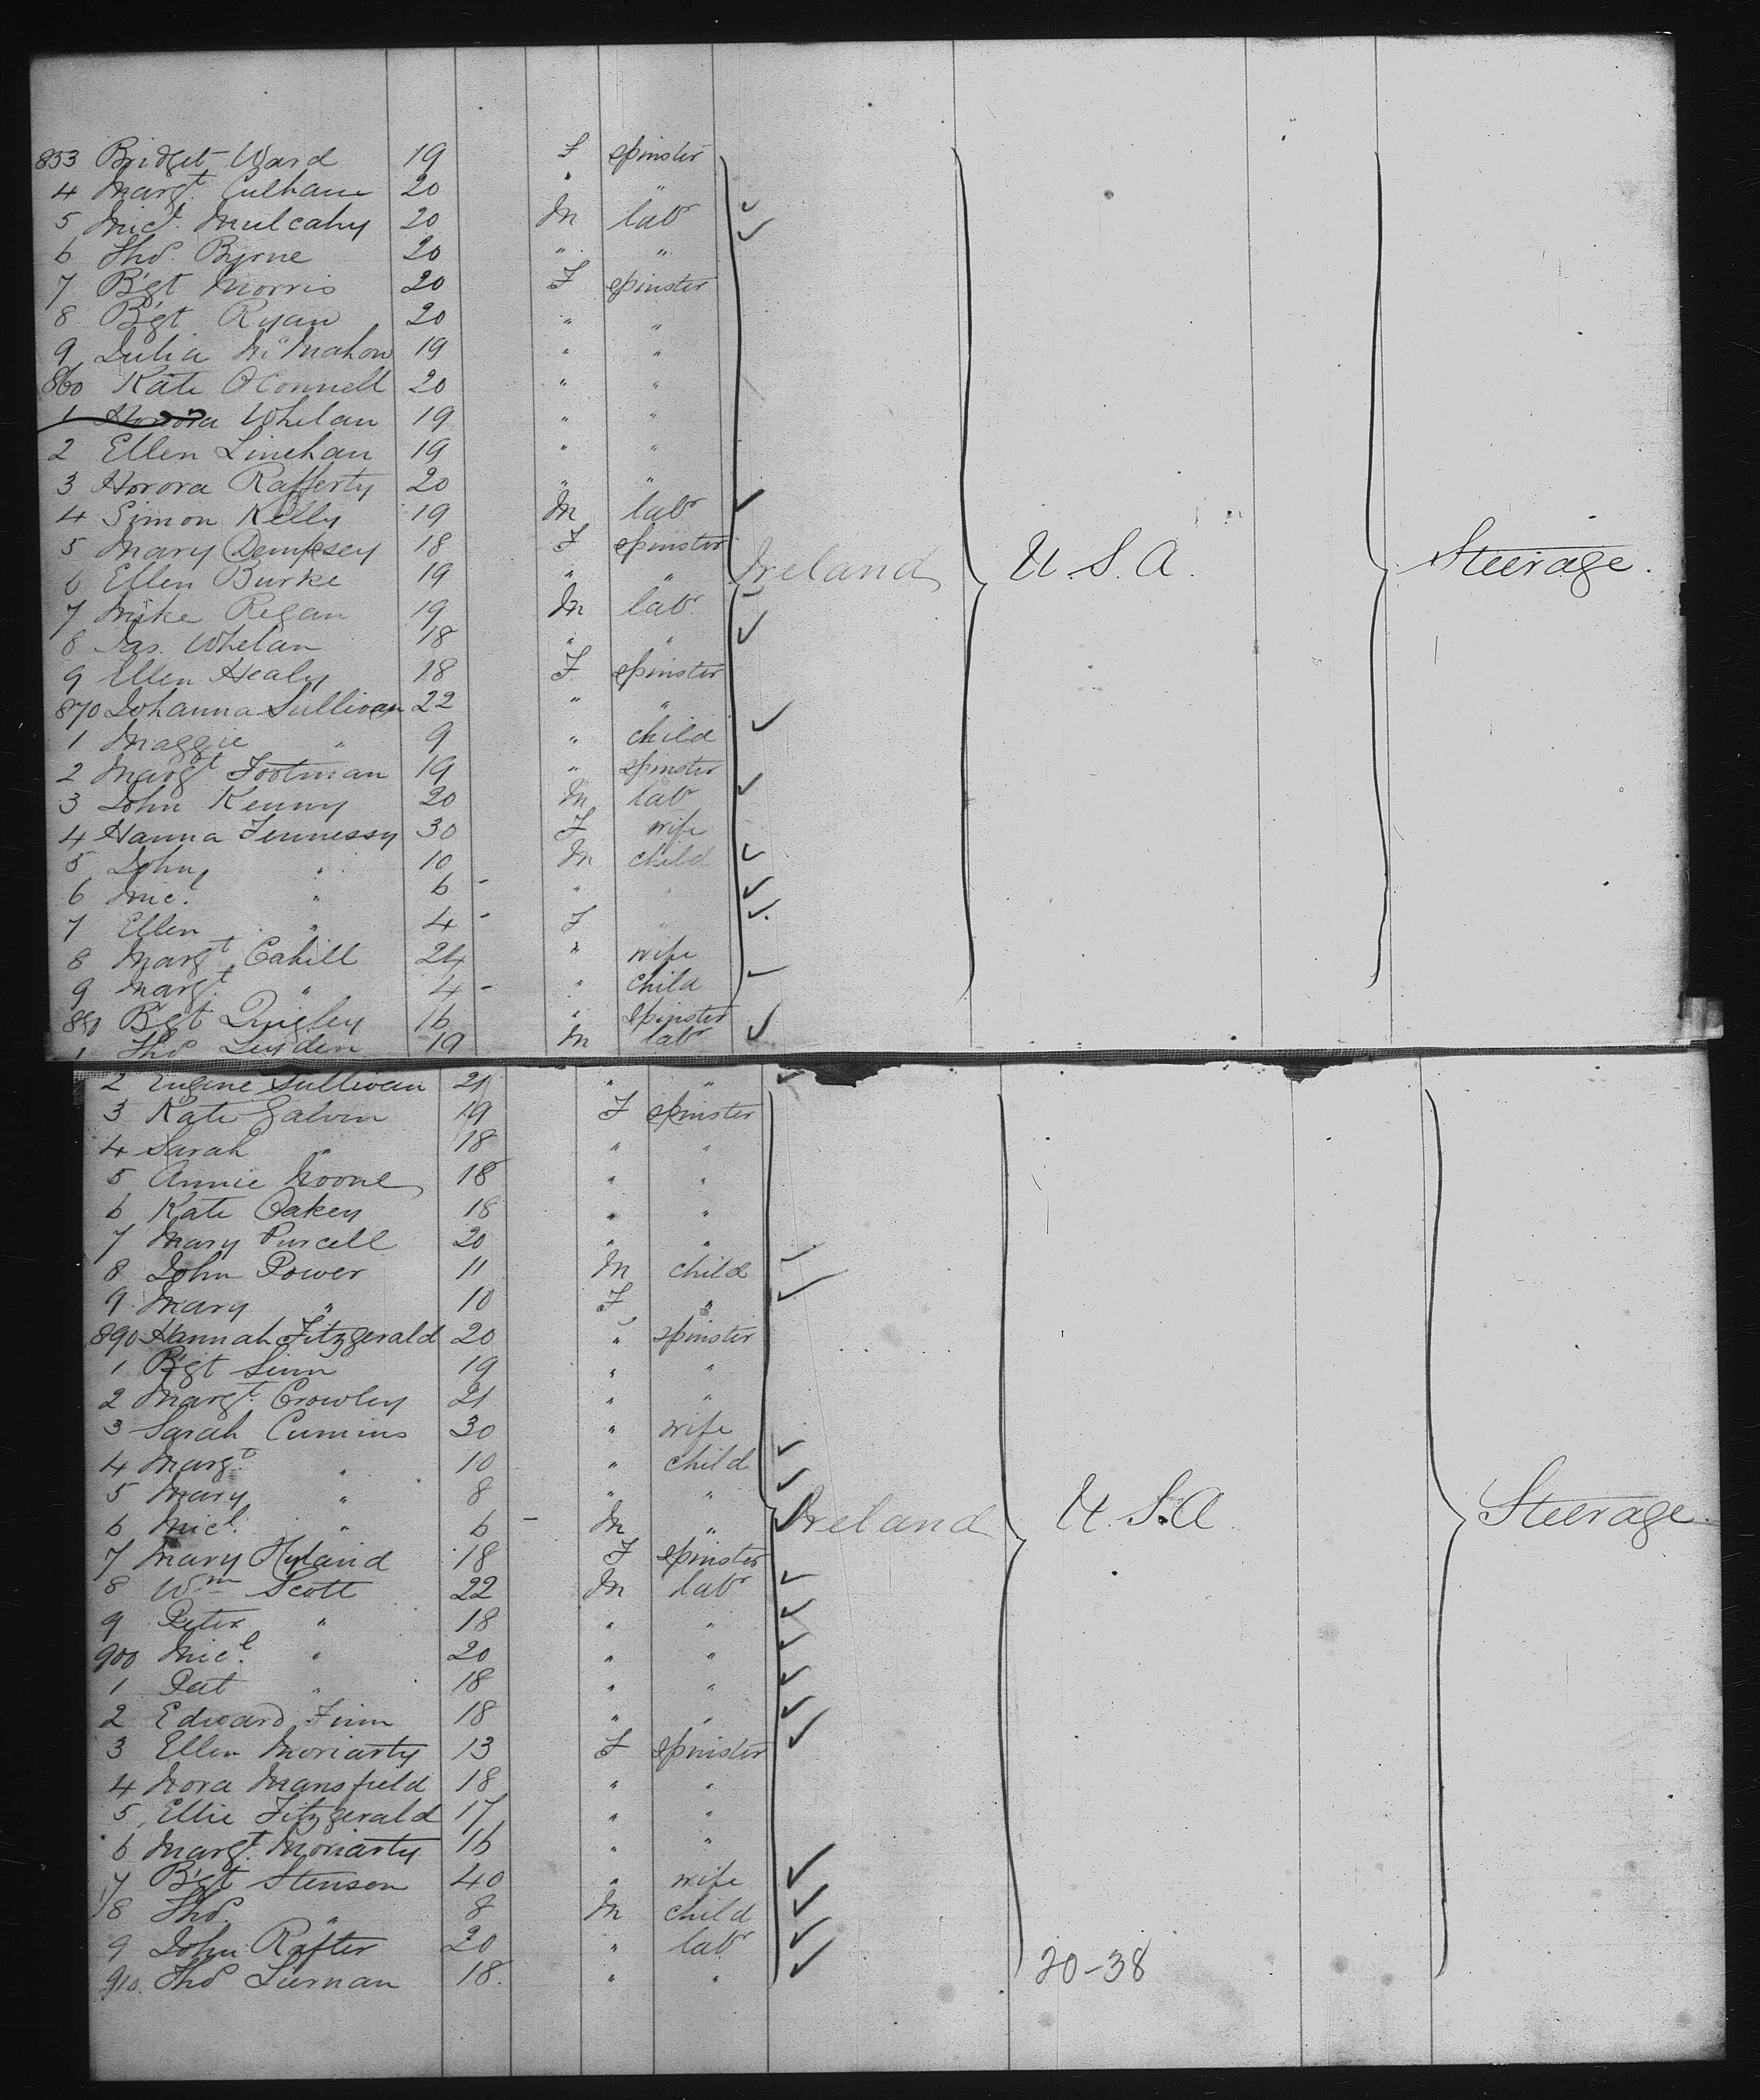 853 Bridget Ward 19 F spinster
4 Margt. Culhane 20 " "
5 Micl. Mulcahy 20 M labr
6 Thos. Byrne 20 " "
7 Bgt Morris 20 F spinster
8 Bgt Ryan 20 " "
9 Julia McMahon 19 " "
860 Kate O'Connell 20 " "
1 Honora Whelan 19 " "
2 Ellen Linehan 19 " "
3 Honora Rafferty 20 " "
4 Simon Kelly 19 M labr
5 Mary Dempsey 18 F spinster
6 Ellen Burke 19 " " Ireland U.S.A. Steerage.
7 Mike Regan 19 M labr
8 Jas. Whelan 18 " "
9 Ellen Healy 18 F spinster
870 Johanna Sullivan 22 " "
1 Maggie " 9 " child
2 Margt Footman 19 " spinster
3 John Kenny 20 M labr
4 Hanna Fennessy 30 F wife
5 John " 10 M child
6 Micl. " 6 - " "
7 Ellen " 4 - F "
8 Margt Cahill 24 " wife
9 Margt. " 4 - " child
880 Bgt Quigley 16 " spinster
1 Thos Leyden 19 M labr
2 Eugene Sullivan 21 " "
3 Kate Galvin 19 F spinster
4 Sarah " 18 " "
5 Annie Noone 18 " "
6 Kate Oakey 18 " "
7 Mary Purcell 20 " "
8 John Power 11 M child
9 Mary " 10 F "
890 Hannah Fitzgerald 20 " spinster
1 Bgt Linn 19 " "
2 Margt. Crowley 21 " "
3 Sarah Cumins 30 " wife
4 Margt. " 10 " child
5 Mary " 8 " "
6 Micl. " 6 - M " Ireland U.S.A. Steerage.
7 Mary Hyland 18 F spinster
8 Wm Scott 22 M labr
9 Peter " 18 " "
900 Micl. " 20 " "
1 Pat " 18 " "
2 Edward Finn 18 " "
3 Ellen Moriarty 13 F spinster
4 Nora Mansfield 18 " "
5 Ellie Fitzgerald 17 " "
6 Margt. Moriarty 16 " "
7 Bgt Stenson 40 " wife
8 Thos. " 8 M child
9 John Rafter 20 " labr
910. Thos Tiernan 18. " " 20-38